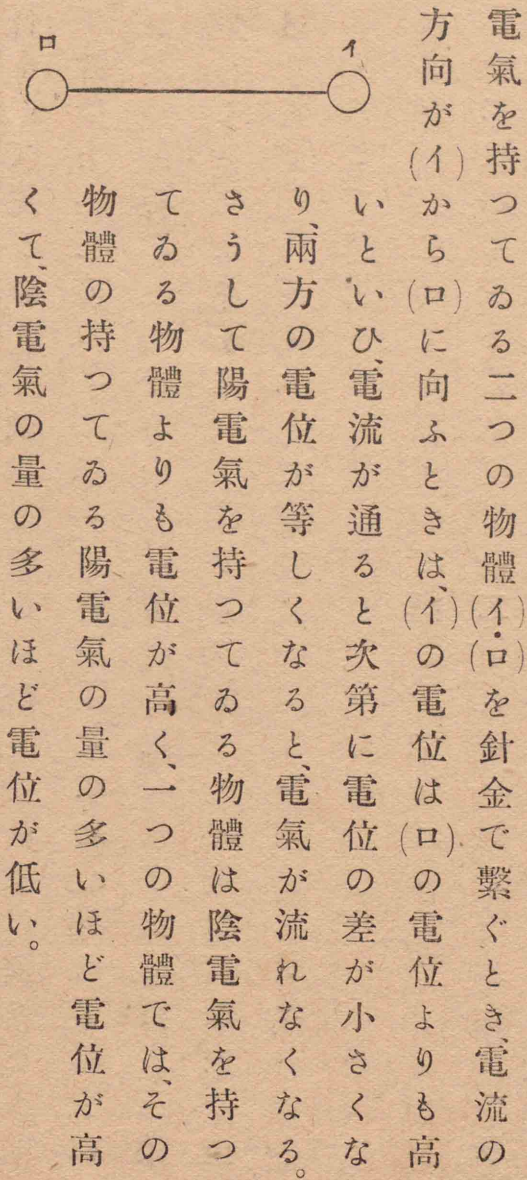 電氣を持つてゐる二つの物體(イ)・(ロ)を針金で繫ぐとき、電流の
方向が(イ)から(ロ)に向ふときは、(イ)の電位は(ロ)の電位よりも高
いといひ、電流が通ると次第に電位の差が小さくな
り、兩方の電位が等しくなると、電氣が流れなくなる。
さうして陽電氣を持つてゐる物體は陰電氣を持つ
てゐる物體よりも電位が高く、一つの物體では、その
物體の持つてゐる陽電氣の量の多いほど電位が高
くて、陰電氣の量の多いほど電位が低い。
イ
ロ